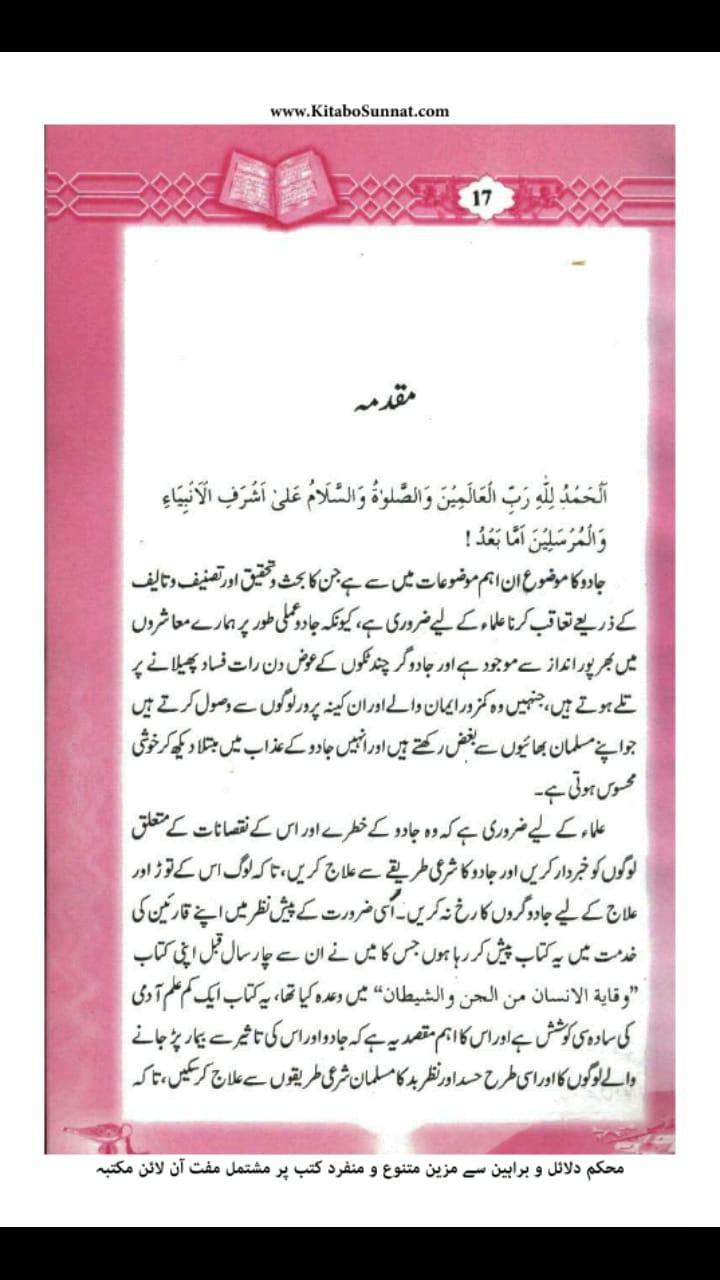 www.KitaboSunnat.com
17
مقدمہ
اَلْحَمْدُ لِلّٰهِ رَبِّ الْعَالَمِيْنَ وَالصَّلٰوةُ وَالسَّلَامُ عَلىٰ اَشْرَفِ الْاَنْبِيَاءِ
وَالْمُرْسَلِيْنَ اَمَّا بَعْدُ !
جادو کا موضوع ان اہم موضوعات میں سے ہے جن کا بحث و تحقیق اور تصنیف و تالیف
کے ذریعے تعاقب کرنا علماء کے لیے ضروری ہے، کیونکہ جادو عملی طور پر ہمارے معاشروں
میں بھرپور انداز سے موجود ہے اور جادوگر چند ٹکوں کے عوض دن رات فساد پھیلانے پر
تلے ہوتے ہیں، جنہیں وہ کمزور ایمان والے اور ان کینہ پرور لوگوں سے وصول کرتے ہیں
جو اپنے مسلمان بھائیوں سے بغض رکھتے ہیں اور انہیں جادو کے عذاب میں مبتلا دیکھ کر خوشی
محسوس ہوتی ہے۔
علماء کے لیے ضروری ہے کہ وہ جادو کے خطرے اور اس کے نقصانات کے متعلق
لوگوں کو خبردار کریں اور جادو کا شرعی طریقے سے علاج کریں، تاکہ لوگ اس کے توڑ اور
علاج کے لیے جادوگروں کا رخ نہ کریں۔ اسی ضرورت کے پیش نظر میں اپنے قارئین کی
خدمت میں یہ کتاب پیش کر رہا ہوں جس کا میں نے ان سے چار سال قبل اپنی کتاب
”وقاية الانسان من الجن والشيطان“ میں وعدہ کیا تھا، یہ کتاب ایک کم علم آدمی
کی سادہ سی کوشش ہے اور اس کا اہم مقصد یہ ہے کہ جادو اور اس کی تاثیر سے بیمار پڑ جانے
والے لوگوں کا اور اسی طرح حسد اور نظر بد کا مسلمان شرعی طریقوں سے علاج کر سکیں، تاکہ
محکم دلائل و براہین سے مزین متنوع و منفرد کتب پر مشتمل مفت آن لائن مکتبہ